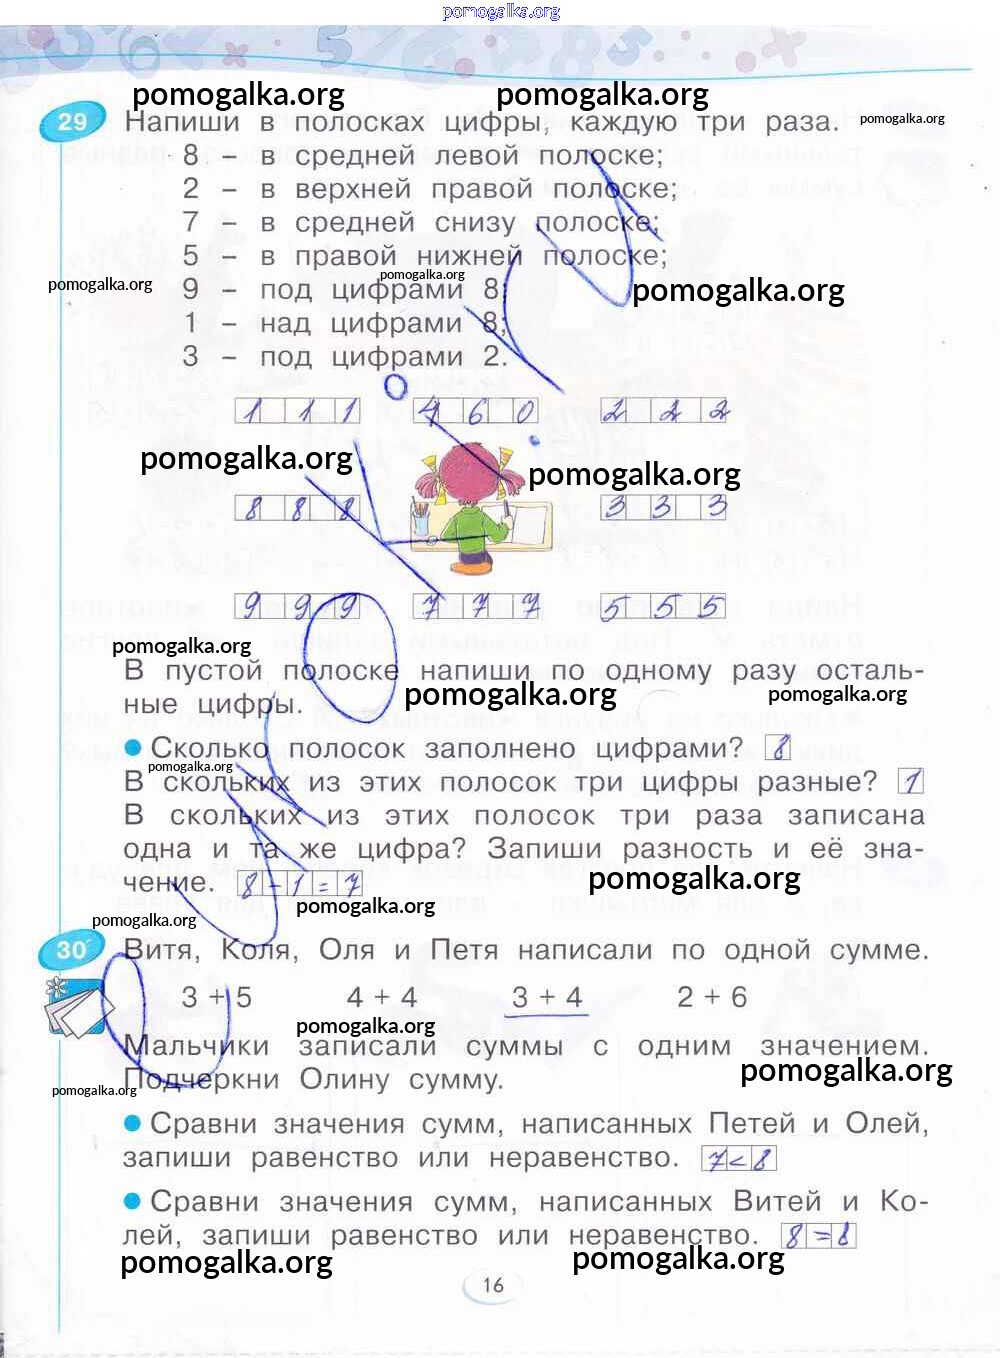 pomogalka.org
pomogalka.org pomogalka.org
29 Напиши в полосках цифры, каждую три раза. pomogalka.org
8 – в средней левой полоске;
2 – в верхней правой полоске;
7 – в средней снизу полоске;
5 – в правой нижней полоске;
pomogalka.org pomogalka.org
9 – под цифрами 8; pomogalka.org
1 – над цифрами 8;
3 – под цифрами 2.
1 1 1 4 6 0 2 2 2
pomogalka.org pomogalka.org
8 8 8 3 3 3
9 9 9 7 7 7 5 5 5
pomogalka.org
В пустой полоске напиши по одному разу осталь-
pomogalka.org pomogalka.org
ные цифры.
Сколько полосок заполнено цифрами? 8
pomogalka.org
В скольких из этих полосок три цифры разные? 1
В скольких из этих полосок три раза записана
одна и та же цифра? Запиши разность и её зна-
чение. 8 - 1 = 7 pomogalka.org
pomogalka.org pomogalka.org
30 Витя, Коля, Оля и Петя написали по одной сумме.
3 + 5 4 + 4 3 + 4 2 + 6
pomogalka.org
Мальчики записали суммы с одним значением.
pomogalka.org
Подчеркни Олину сумму.
pomogalka.org
Сравни значения сумм, написанных Петей и Олей,
запиши равенство или неравенство. 7 < 8
Сравни значения сумм, написанных Витей и Ко-
лей, запиши равенство или неравенство. 8 = 8
pomogalka.org pomogalka.org
16